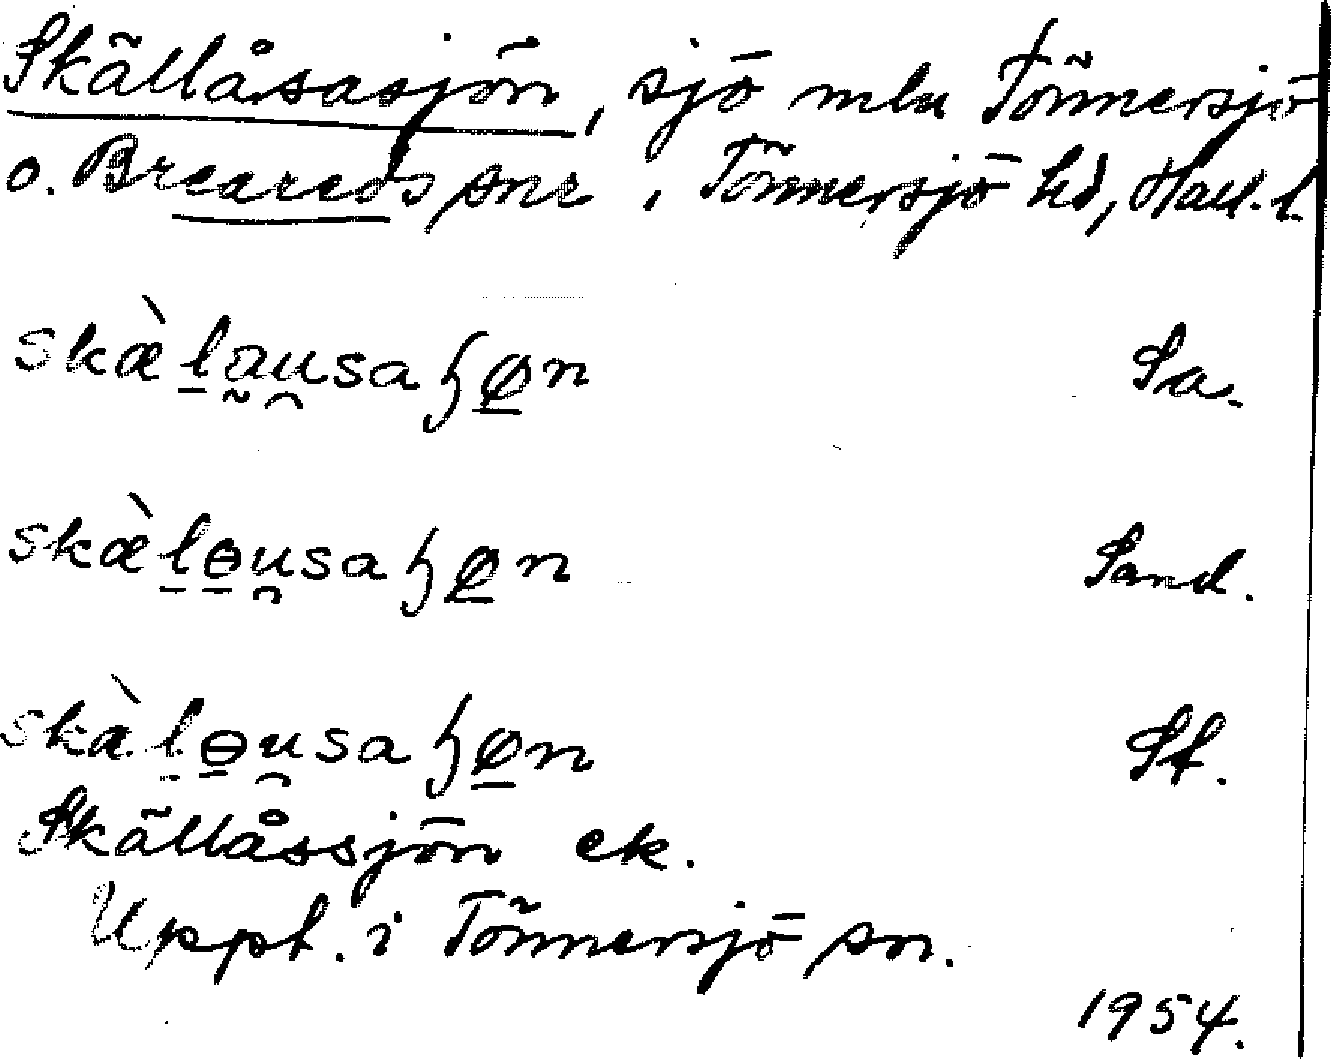 Skällåsasjön, sjö mln Tönnersjö
o. Breareds snr, Tönnersjö hd, Hall. l.
skæ̀l̠a̰u̯saɧø̠n Sa.
skæ̀l̠ɵ̠u̯saɧø̠n Sand.
skæ̀l̠ɵ̠u̯saɧø̠n Sf.
Skällåssjön ek.
Uppt. i Tönnersjö sn.
1954.